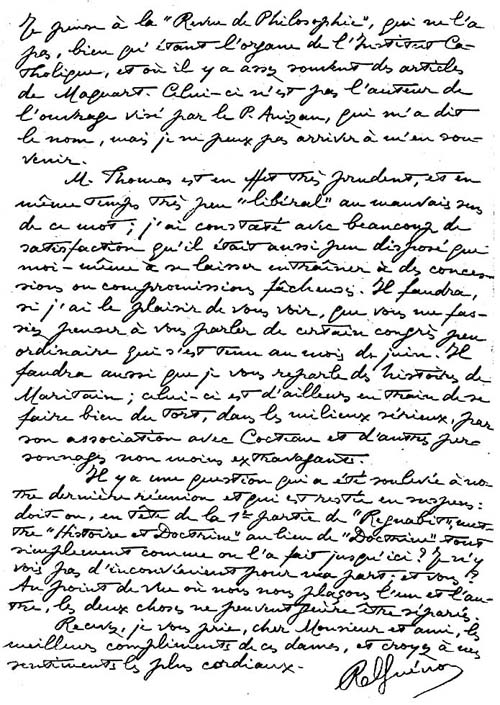 Je pense à la "Revue de Philosophie", qui ne l'a
pas, bien qu'étant l'organe de l'Institut Ca-
tholique, et où il y a assez souvent des articles
de Maquart. Celui-ci n'est pas l'auteur de
l'ouvrage visé par le P. Anizan, qui m'a dit
le nom, mais je ne peux pas arriver à m'en sou-
venir.
M. Thomas est en effet très prudent, et en
même temps très peu "libéral" au mauvais sens
de ce mot; j'ai constaté avec beaucoup de
satisfaction qu'il était aussi peu disposé que
moi-même à se laisser entraîner à des conces-
sions ou compromissions fâcheuses. Il faudra,
si j'ai le plaisir de vous voir, que vous me fas-
siez penser à vous parler de certain congrès peu
ordinaire qui s'est tenu au mois de juin. Il
faudra aussi que je vous reparle des histoires de
Maritain; celui-ci est d'ailleurs en train de se
faire bien du tort, dans les milieux sérieux, par
son association avec Cocteau et d'autres per-
sonnages non moins extravagants.
Il y a une question qui a été soulevée à no-
tre dernière réunion et qui est restée en suspens:
doit-on, en tête de la 1re partie de "Regnabit", met-
tre "Histoire et Doctrine" au lieu de "Doctrine" tout
simplement comme on l'a fait jusqu'ici? Je n'y
vois pas d'inconvénient pour ma part; et vous?
Au point de vue où nous nous plaçons l'un et l'au-
tre, les deux choses ne peuvent guère être séparées.
Recevez, je vous prie, cher Monsieur et ami, les
meilleurs compliments de ces dames, et croyez à mes
sentiments les plus cordiaux.
René Guénon